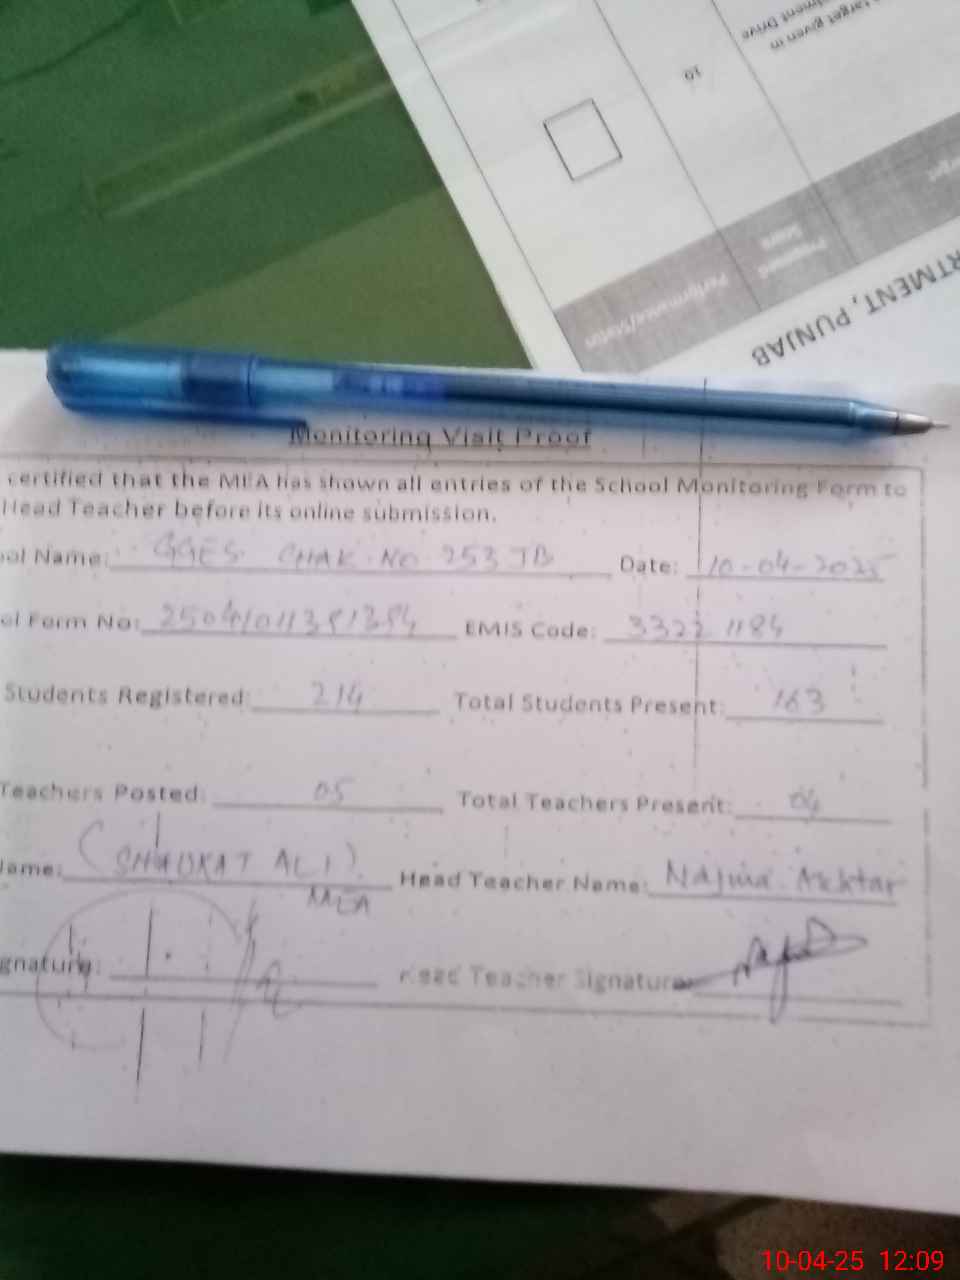 target given in
ment Drive
10
Proposed
Marks
Performance/Status
RTMENT, PUNJAB
Monitoring Visit Proof
certified that the MEA has shown all entries of the School Monitoring Form to
Head Teacher before its online submission.
ol Name: GGES CHAK NO 253 JB Date: 10-04-2025
ol Form No: EMIS Code: 33221184
Students Registered: 214 Total Students Present: 163
Teachers Posted: 05 Total Teachers Present: 04
Name: (SHAUKAT ALI) Head Teacher Name: Najma Akhtar
MEA
gnature: Head Teacher Signature:
10-04-25 12:09